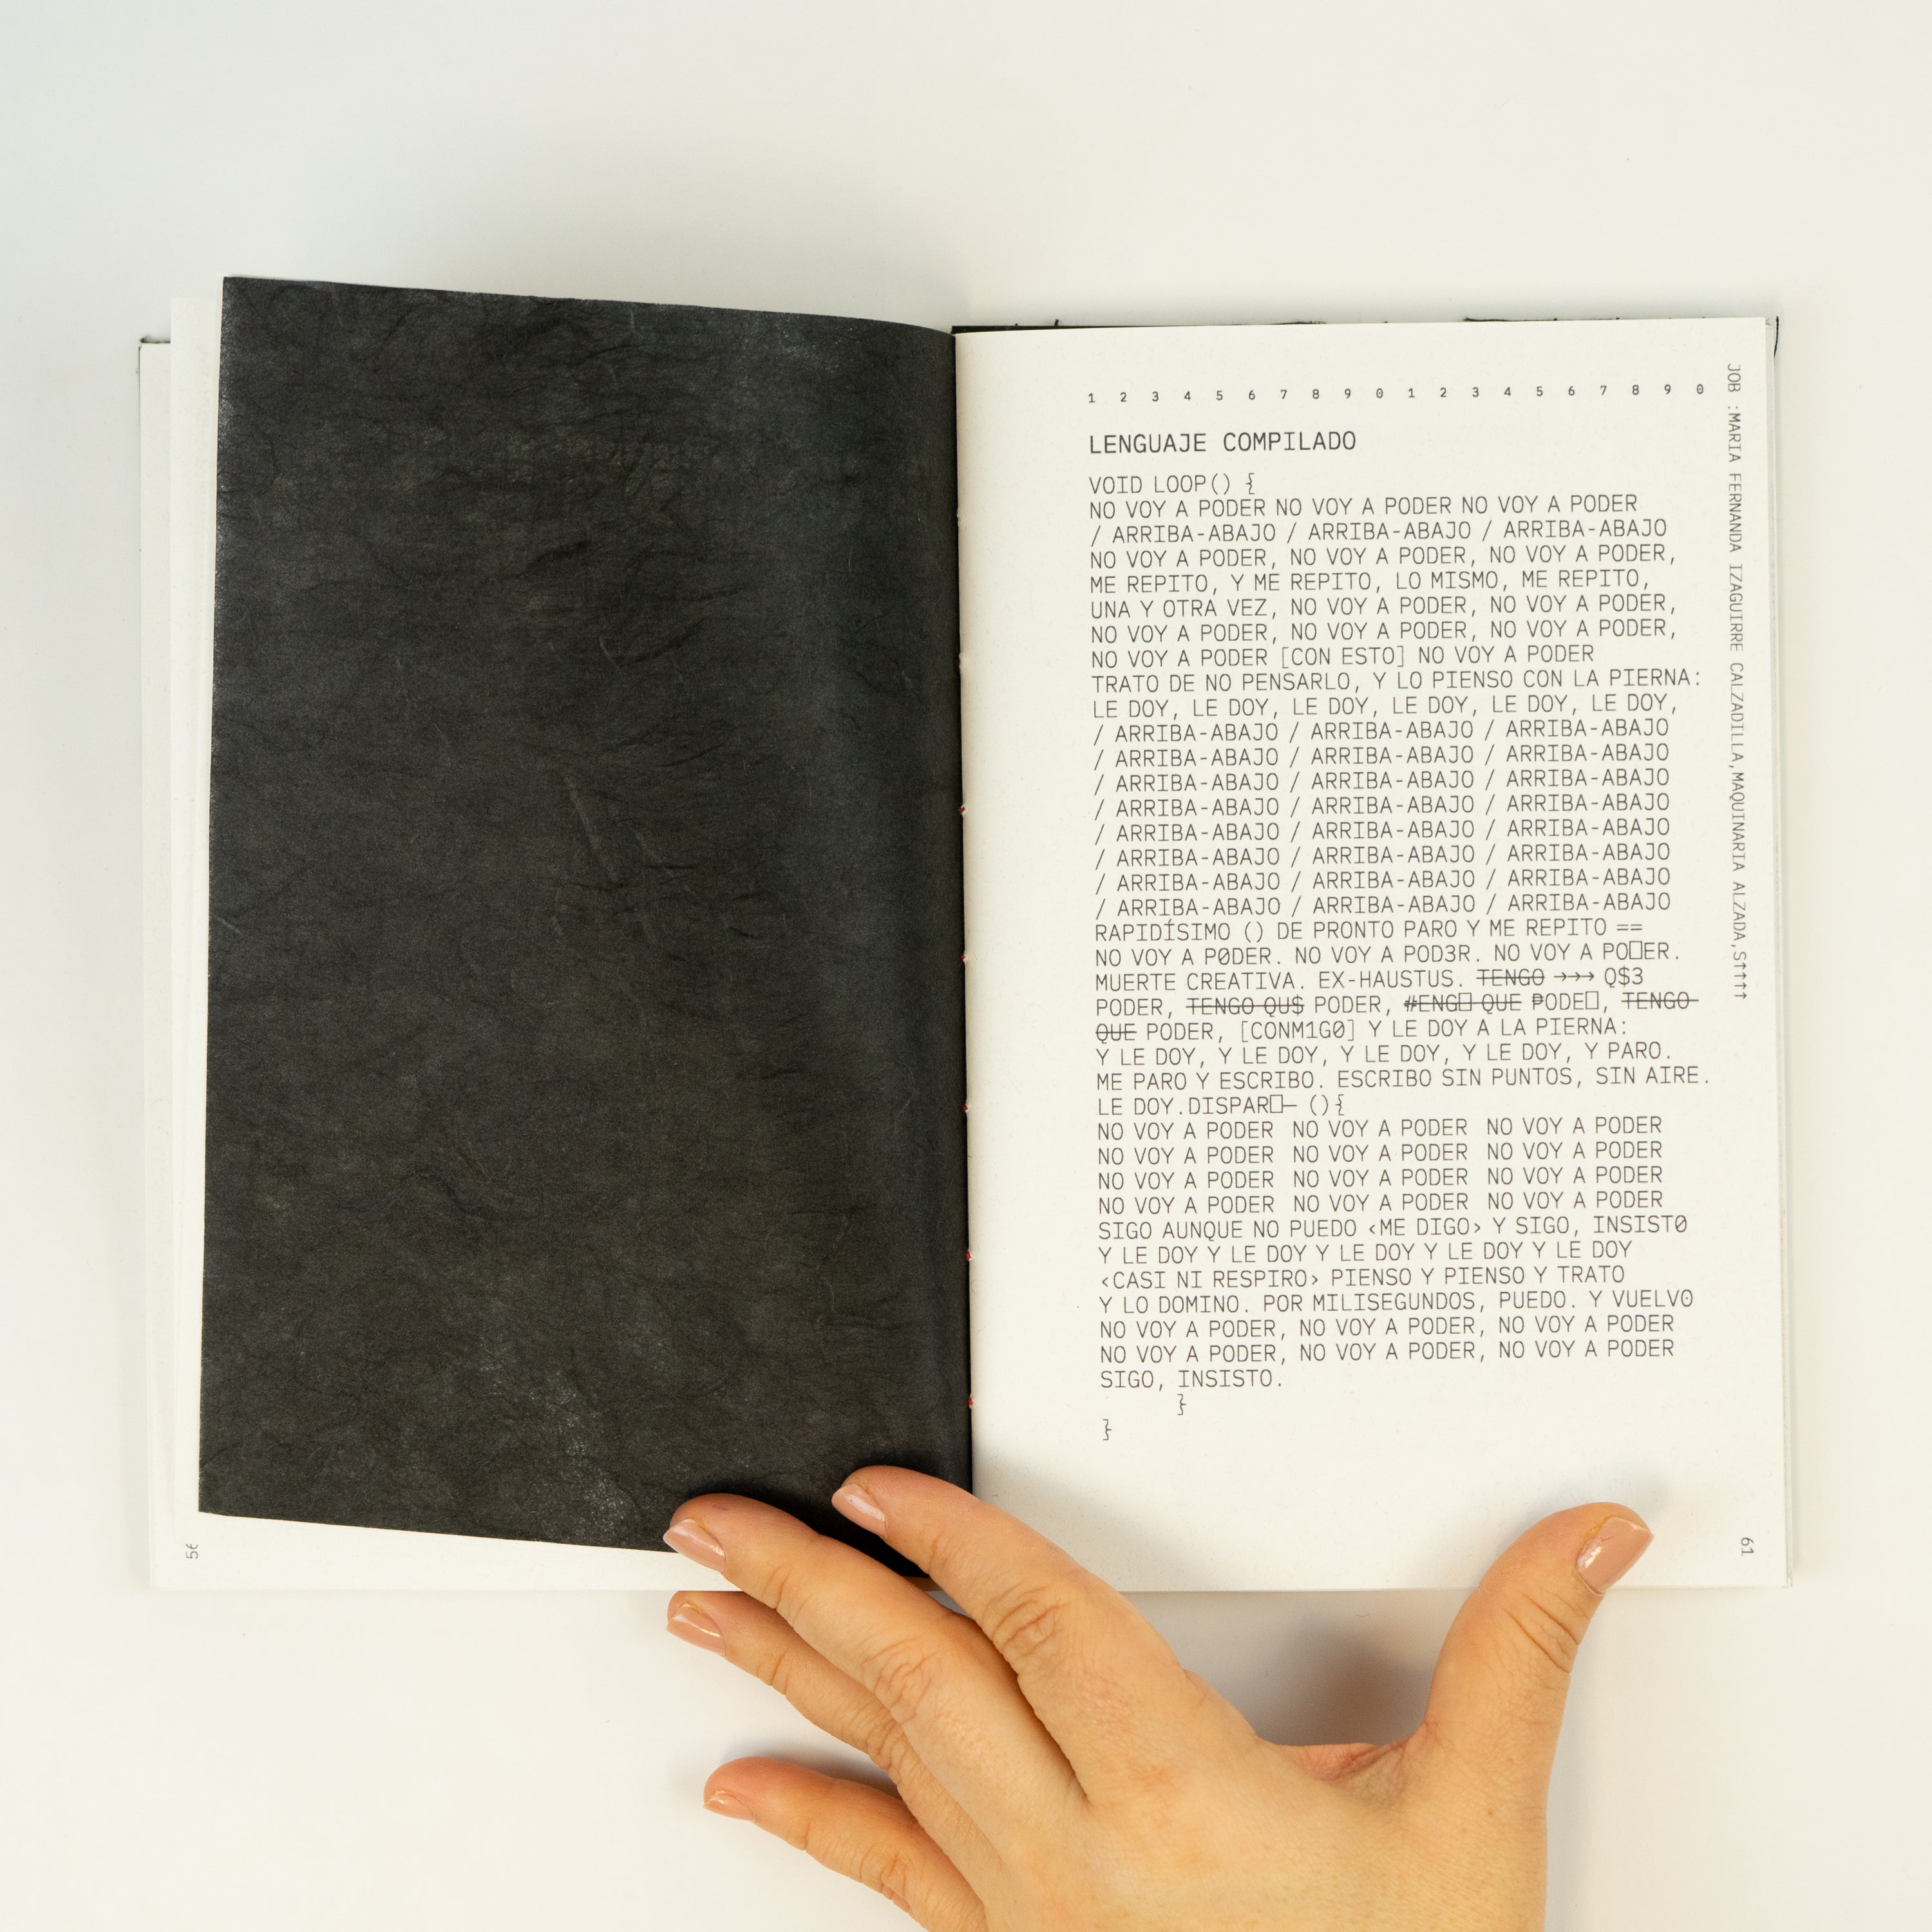 1 2 3 4 5 6 7 8 9 0 1 2 3 4 5 6 7 8 9 0
LENGUAJE COMPILADO
VOID LOOP() {
NO VOY A PODER NO VOY A PODER NO VOY A PODER
/ ARRIBA-ABAJO / ARRIBA-ABAJO / ARRIBA-ABAJO
NO VOY A PODER, NO VOY A PODER, NO VOY A PODER,
ME REPITO, Y ME REPITO, LO MISMO, ME REPITO,
UNA Y OTRA VEZ, NO VOY A PODER, NO VOY A PODER,
NO VOY A PODER, NO VOY A PODER, NO VOY A PODER,
NO VOY A PODER [CON ESTO] NO VOY A PODER
TRATO DE NO PENSARLO, Y LO PIENSO CON LA PIERNA:
LE DOY, LE DOY, LE DOY, LE DOY, LE DOY, LE DOY,
/ ARRIBA-ABAJO / ARRIBA-ABAJO / ARRIBA-ABAJO
/ ARRIBA-ABAJO / ARRIBA-ABAJO / ARRIBA-ABAJO
/ ARRIBA-ABAJO / ARRIBA-ABAJO / ARRIBA-ABAJO
/ ARRIBA-ABAJO / ARRIBA-ABAJO / ARRIBA-ABAJO
/ ARRIBA-ABAJO / ARRIBA-ABAJO / ARRIBA-ABAJO
/ ARRIBA-ABAJO / ARRIBA-ABAJO / ARRIBA-ABAJO
/ ARRIBA-ABAJO / ARRIBA-ABAJO / ARRIBA-ABAJO
/ ARRIBA-ABAJO / ARRIBA-ABAJO / ARRIBA-ABAJO
RAPIDÍSIMO () DE PRONTO PARO Y ME REPITO ==
NO VOY A P0DER. NO VOY A POD3R. NO VOY A PO□ER.
MUERTE CREATIVA. EX-HAUSTUS. TENGO →→→ Q$3
PODER, TENGO QU$ PODER, #ENG□ QUE ₱ODE□, TENGO
QUE PODER, [CONM1G0] Y LE DOY A LA PIERNA:
Y LE DOY, Y LE DOY, Y LE DOY, Y LE DOY, Y PARO.
ME PARO Y ESCRIBO. ESCRIBO SIN PUNTOS, SIN AIRE.
LE DOY.DISPAR□— (){
NO VOY A PODER NO VOY A PODER NO VOY A PODER
NO VOY A PODER NO VOY A PODER NO VOY A PODER
NO VOY A PODER NO VOY A PODER NO VOY A PODER
NO VOY A PODER NO VOY A PODER NO VOY A PODER
SIGO AUNQUE NO PUEDO ‹ME DIGO› Y SIGO, INSIST0
Y LE DOY Y LE DOY Y LE DOY Y LE DOY Y LE DOY
‹CASI NI RESPIRO› PIENSO Y PIENSO Y TRATO
Y LO DOMINO. POR MILISEGUNDOS, PUEDO. Y VUELV0
NO VOY A PODER, NO VOY A PODER, NO VOY A PODER
NO VOY A PODER, NO VOY A PODER, NO VOY A PODER
SIGO, INSISTO.
}
}
JOB :MARIA FERNANDA IZAGUIRRE CALZADILLA,MAQUINARIA ALZADA,S↑↑↑↑
61